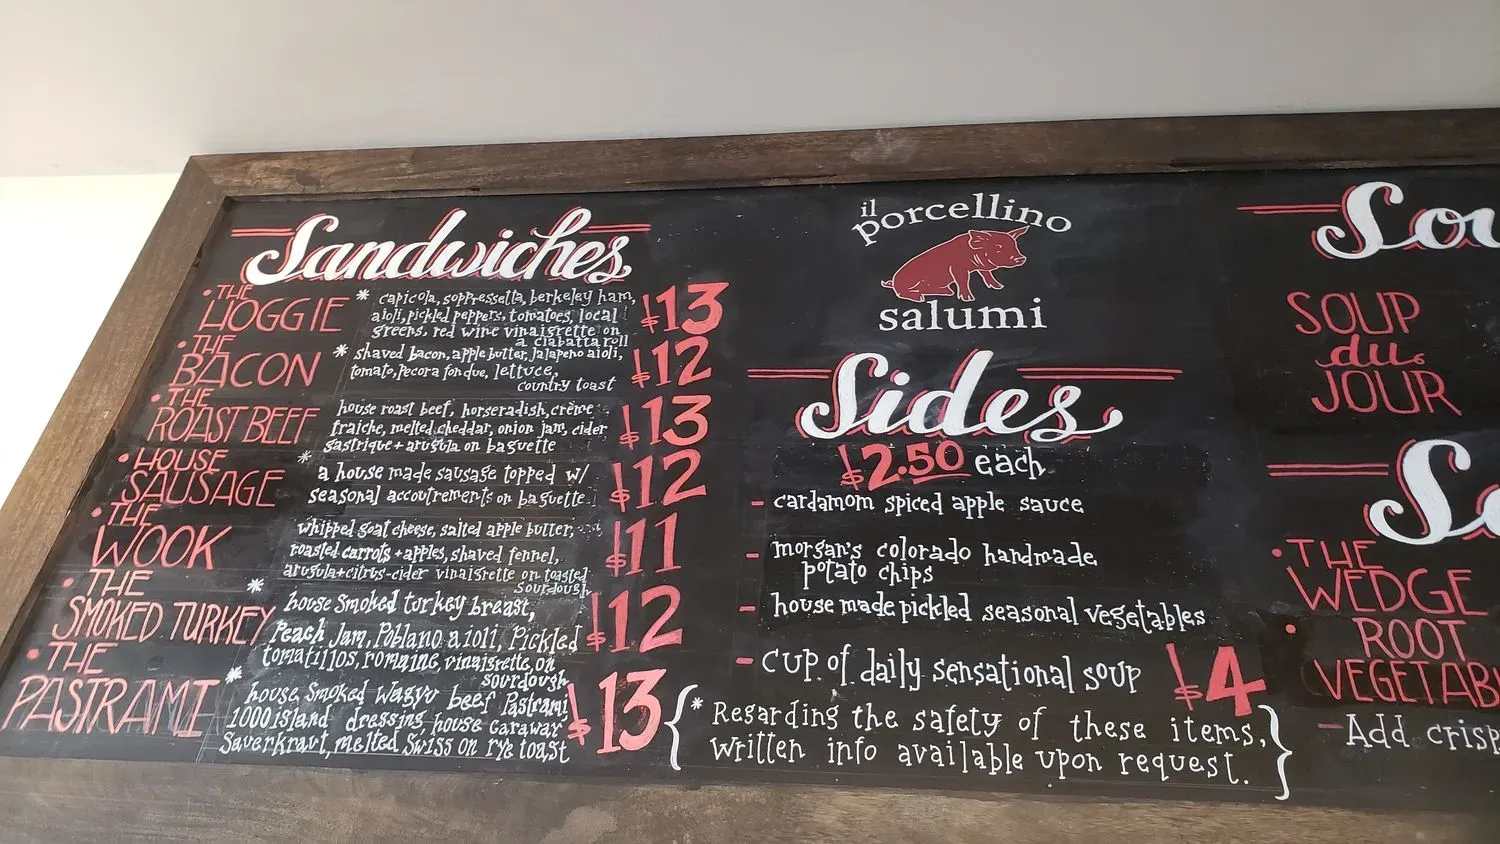 Sandwiches
• THE HOGGIE * capicola, soppressetta, berkeley ham, $13
aioli, pickled peppers, tomatoes, local
greens, red wine vinaigrette on
a ciabatta roll
• THE BACON * shaved bacon, apple butter, Jalapeno aioli, $12
tomato, Pecora fondue, lettuce,
country toast
• THE ROAST BEEF house roast beef, horseradish, crème $13
fraiche, melted cheddar, onion jam, cider
gastrique + arugula on baguette
• HOUSE SAUSAGE * a house made sausage topped w/ $12
seasonal accoutrements on baguette
• THE WOOK whipped goat cheese, salted apple butter, $11
roasted carrots + apples, shaved fennel,
arugula + citrus-cider vinaigrette on toasted
sourdough
• THE SMOKED TURKEY * house smoked turkey breast, $12
Peach Jam, Poblano aioli, Pickled
tomatillos, romaine, vinaigrette, on
sourdough
• THE PASTRAMI * house smoked Wagyu beef Pastrami $13
1000 island dressing, house caraway
Sauerkraut, melted Swiss on rye toast
il
porcellino
salumi
Sides
$2.50 each
- cardamom spiced apple sauce
- morgan's colorado handmade
potato chips
- house made pickled seasonal vegetables
- cup of daily sensational soup $4
{* Regarding the safety of these items,
written info available upon request.}
SOUP
du
JOUR
• THE
WEDGE
• ROOT
- Add